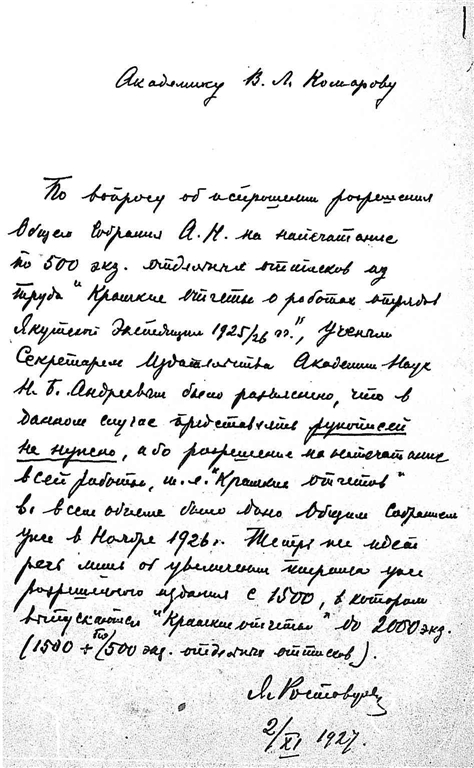 Академику В. Л. Комарову
По вопросу об испрошении разрешения
Общего Собрания А.Н. на напечатание
по 500 экз. отдельных оттисков из
труда "Краткие отчеты о работах отрядов
Якутской Экспедиции 1925/26 гг.", Ученым
Секретарем Издательства Академии Наук
Н. Б. Андреевым было разъяснено, что в
данном случае представлять рукописей
не нужно, ибо разрешение на напечатание
всей работы, т.е. "Кратких отчетов"
в всем объеме было дано Общим Собранием
уже в Ноябре 1926 г. Теперь же идет
речь лишь об увеличении тиража уже
разрешенного издания с 1500, в котором
выпускаются "Краткие отчеты" до 2000 экз.
(1500 + по 500 экз. отдельных оттисков).
2/XI 1927.